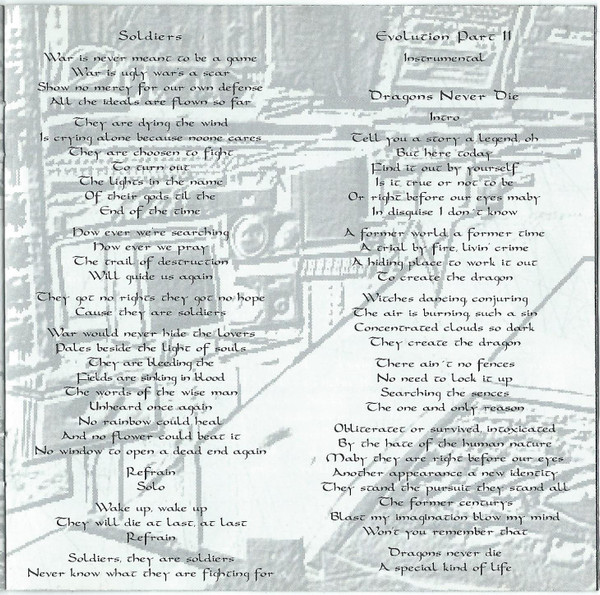 Soldiers
War is never meant to be a game
War is ugly wars a scar
Show no mercy for our own defense
All the ideals are flown so far
They are dying the wind
Is crying alone because noone cares
They are choosen to fight
To turn out
The lights in the name
Of their gods til the
End of the time
How ever we're searching
How ever we pray
The trail of destruction
Will guide us again
They got no rights they got no hope
Cause they are soldiers
War would never hide the lovers
Pales beside the light of souls
They are bleeding the
Fields are sinking in blood
The words of the wise man
Unheard once again
No rainbow could heal
And no flower could beat it
No window to open a dead end again
Refrain
Solo
Wake up, wake up
They will die at last, at last
Refrain
Soldiers, they are soldiers
Never know what they are fighting for
Evolution Part II
Instrumental
Dragons Never Die
Intro
Tell you a story a legend, oh
But here today
Find it out by yourself
Is it true or not to be
Or right before our eyes maby
In disguise I don´t know
A former world a former time
A trial by fire, livin' crime
A hiding place to work it out
To create the dragon
Witches dancing conjuring
The air is burning such a sin
Concentrated clouds so dark
They create the dragon
There ain´t no fences
No need to lock it up
Searching the sences
The one and only reason
Obliteratet or survived, intoxicated
By the hate of the human nature
Maby they are right before our eyes
Another appearance a new identity
They stand the pursuit they stand all
The former centurys
Blast my imagination blow my mind
Won't you remember that
Dragons never die
A special kind of life